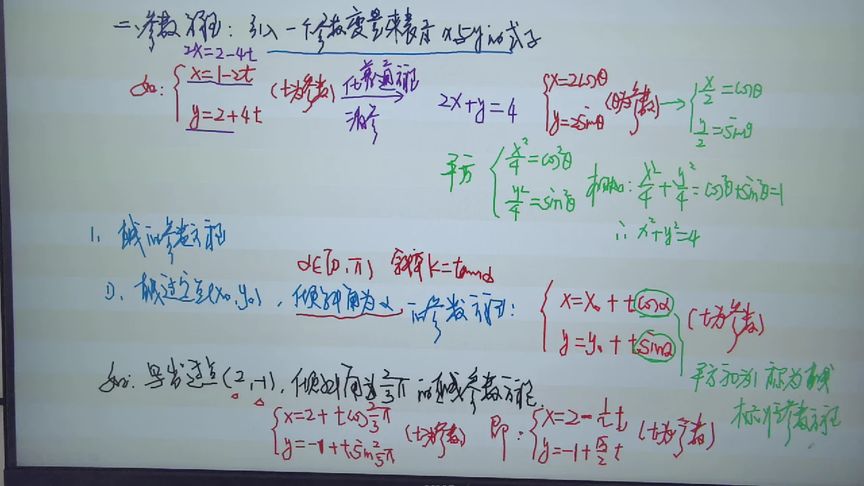 二、参数方程：引入一个参数变量来表示x与y的式子
2x=2-4t
如：{x=1-2t y=2+4t (t为参数) 化普通方程 消参 2x+y=4 {x=2cosθ y=2sinθ (θ为参数) → {x/2=cosθ y/2=sinθ
平方 {x²/4=cos²θ y²/4=sin²θ 相加：x²/4+y²/4=cos²θ+sin²θ=1
∴x²+y²=4
1、直线的参数方程
α∈[0,π) 斜率k=tanα
①、直线过定点(x₀,y₀)，倾斜角为α的参数方程：{x=x₀+tcosα y=y₀+tsinα (t为参数)
平方和为1 称为直线
标准参数方程
如：写出过点(2,-1)，倾斜角为2/3π的直线参数方程.
{x=2+tcos2/3π y=-1+tsin2/3π (t为参数) 即：{x=2-1/2t y=-1+√3/2t (t为参数)